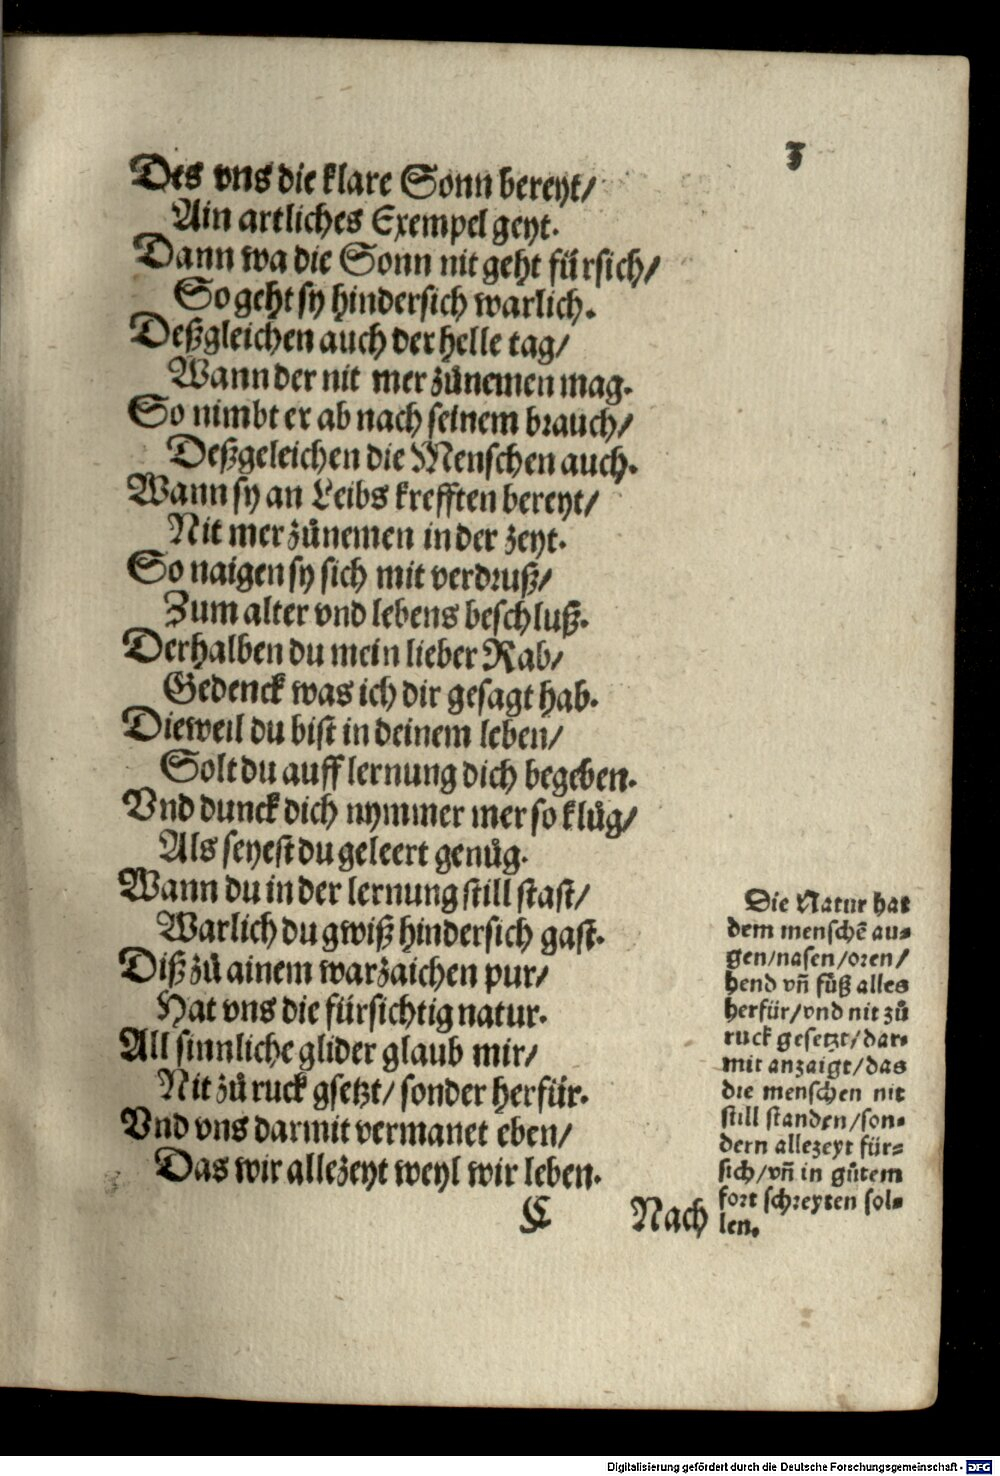 3
Des vns die klare Sonn bereyt/
Ain artliches Exempel geyt.
Dann wa die Sonn nit geht fürsich/
So geht sy hindersich warlich.
Deßgleichen auch der helle tag/
Wann der nit mer zůnemen mag.
So nimbt er ab nach seinem brauch/
Deßgeleichen die Menschen auch.
Wann sy an Leibs krefften bereyt/
Nit mer zůnemen in der zeyt.
So naigen sy sich mit verdruß/
Zum alter vnd lebens beschluß.
Derhalben du mein lieber Rab/
Gedenck was ich dir gesagt hab.
Dieweil du bist in deinem leben/
Solt du auff lernung dich begeben.
Vnd dunck dich nymmer mer so klůg/
Als seyest du geleert genůg.
Wann du in der lernung still stast/
Warlich du gwiß hindersich gast.
Diß zů ainem warzaichen pur/
Hat vns die fürsichtig natur.
All sinnliche glider glaub mir/
Nit zů ruck gsetzt/ sonder herfür.
Vnd vns darmit vermanet eben/
Das wir allezeyt weyl wir leben.
C Nach
Die Natur hat
dem menschē au⸗
gen/nasen/oren/
hend vñ fůß alles
herfür/vnd nit zů
ruck gesetzt/dar⸗
mit anzaigt/das
die menschen nit
still standen/son⸗
dern allezeyt für⸗
sich/vñ in gůtem
fort schreyten sol⸗
len.
Digitalisierung gefördert durch die Deutsche Forschungsgemeinschaft - DFG